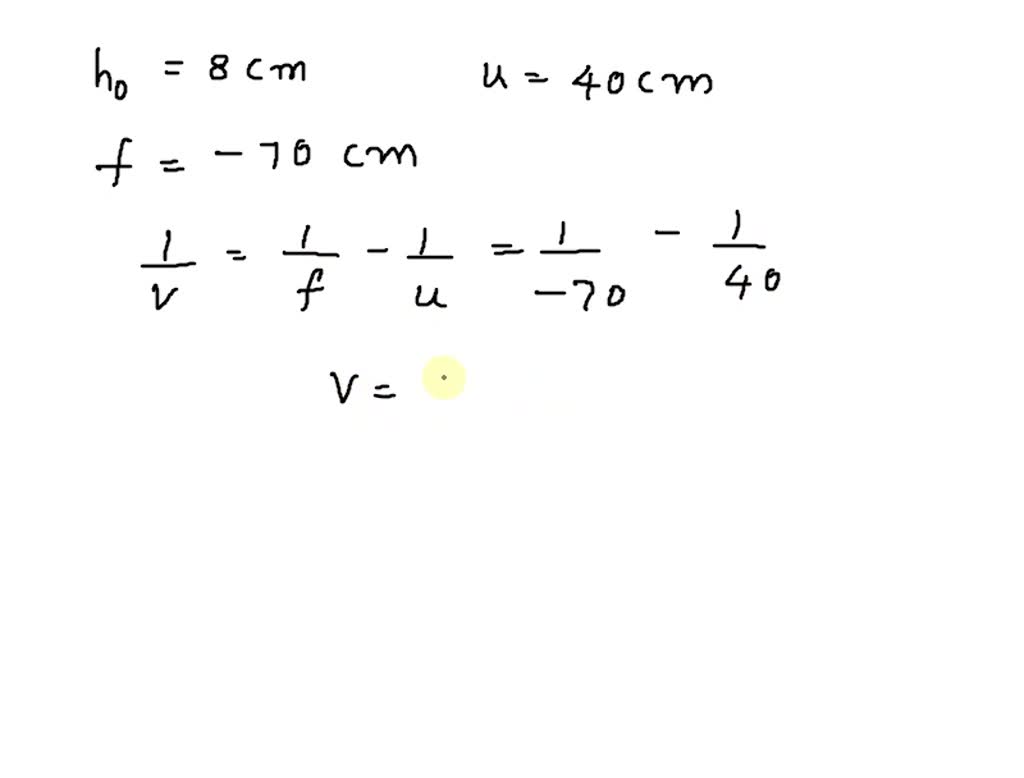 h₀ = 8 cm u = 40 cm
f = - 70 cm
1/v = 1/f - 1/u = 1/-70 - 1/40
v =